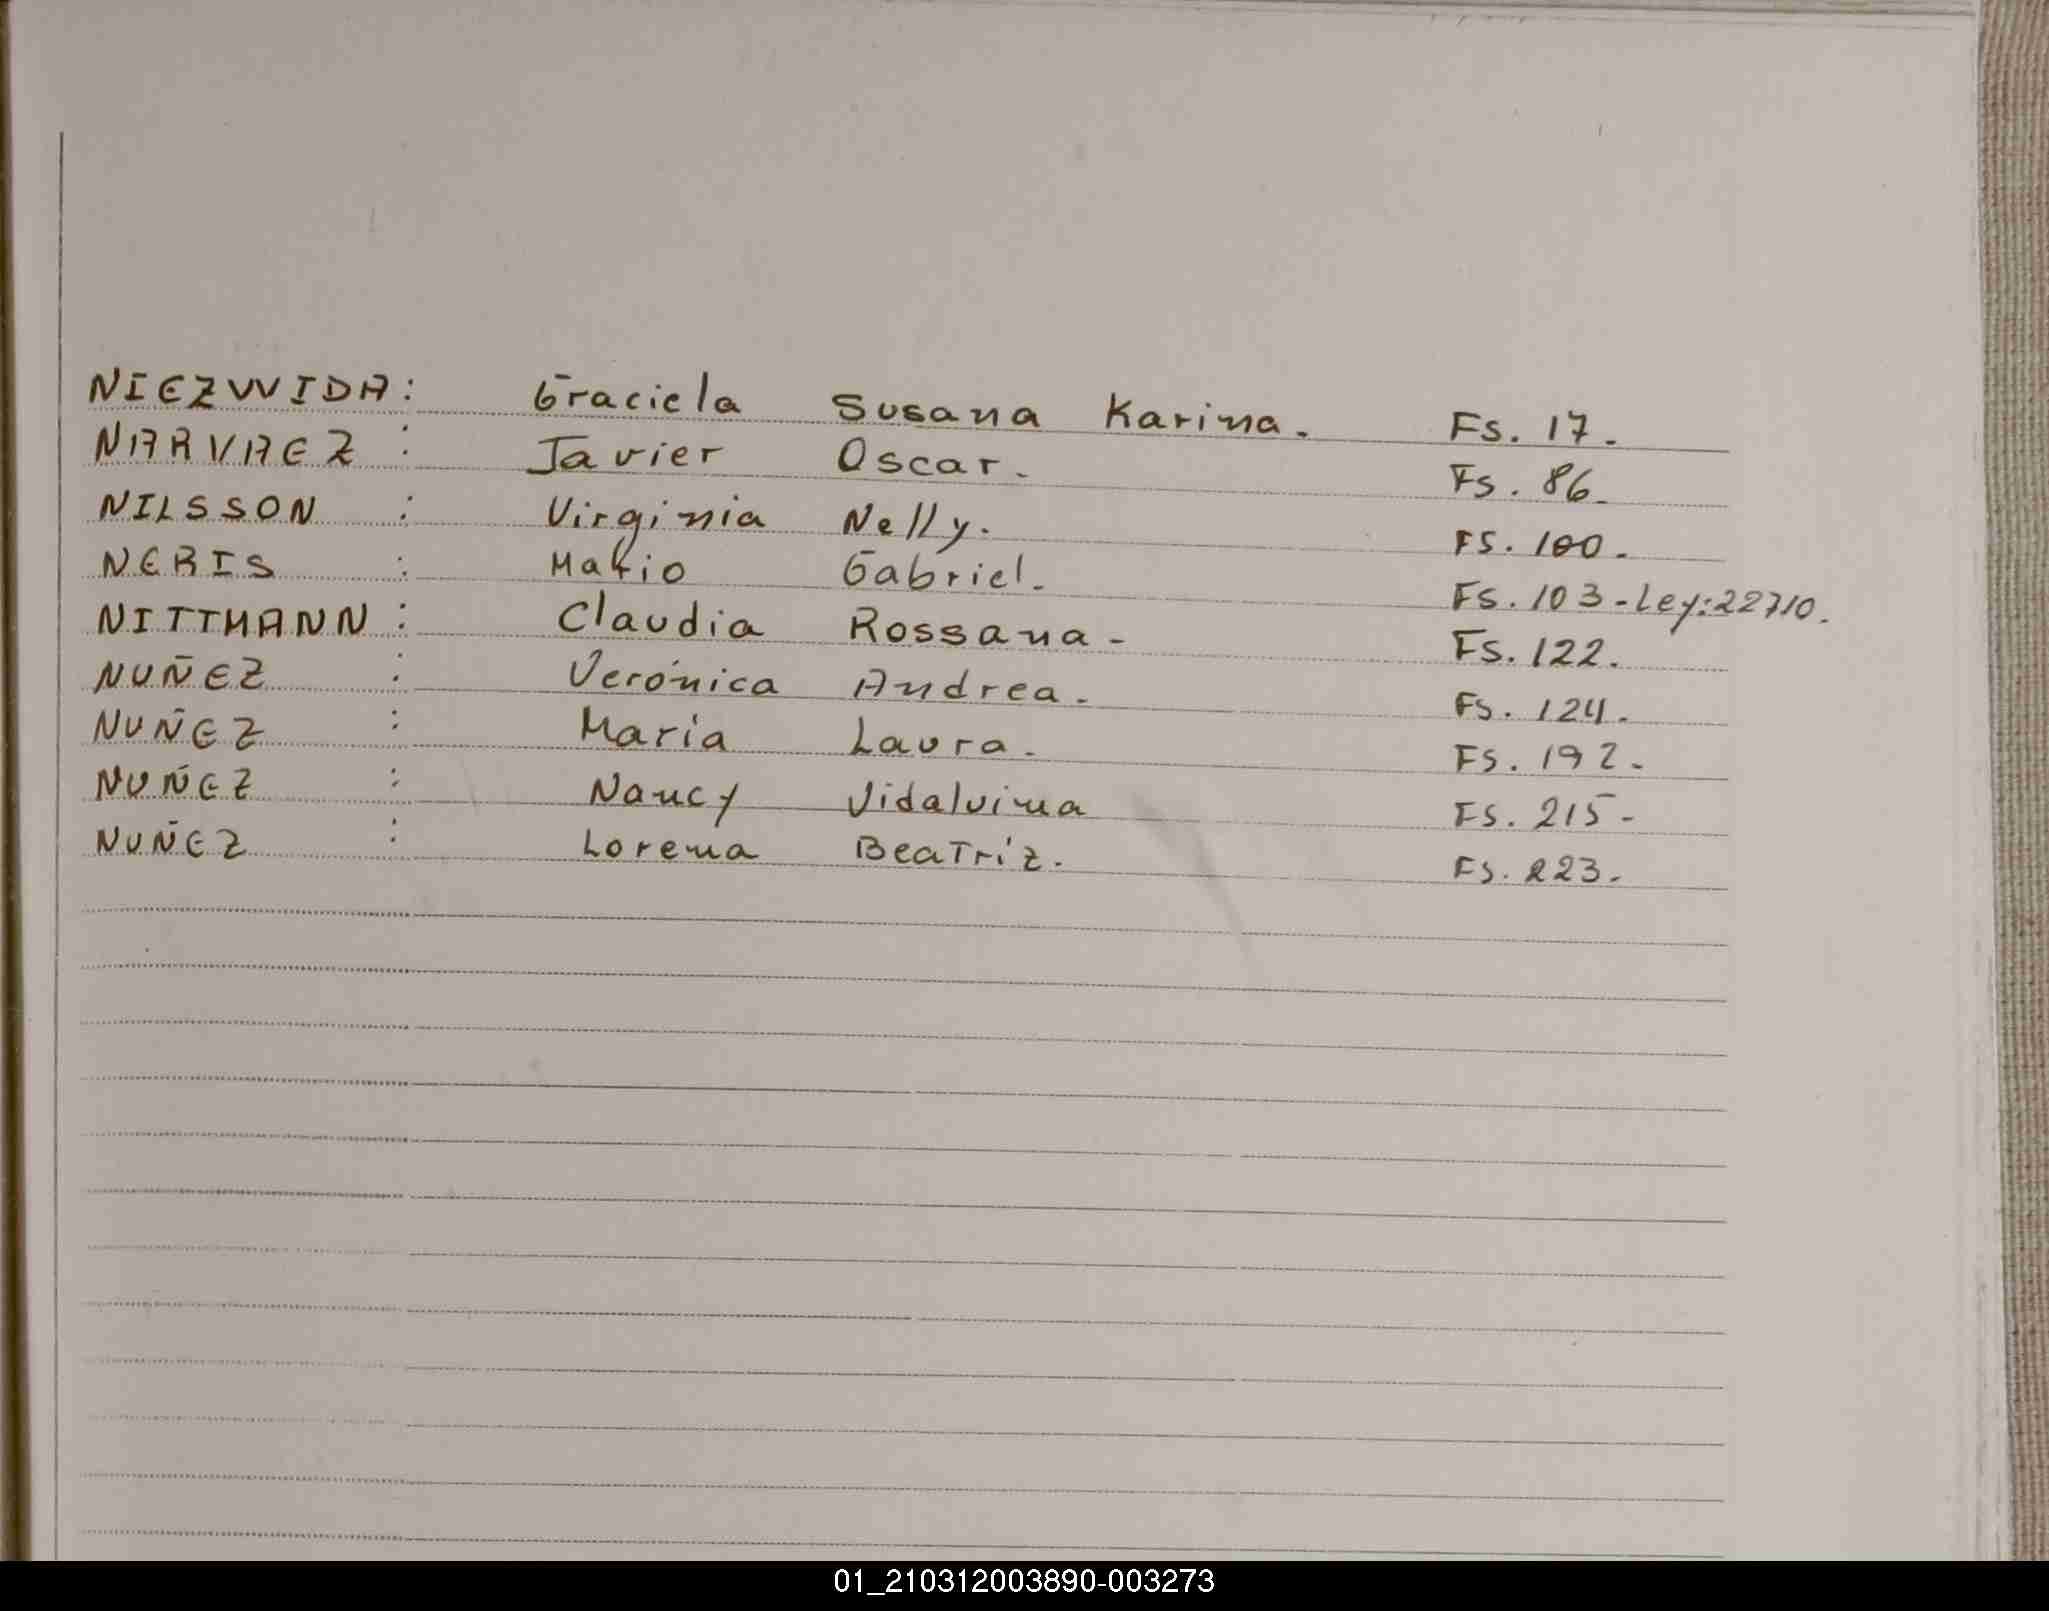 NIEZWIDA: Graciela Susana Karina. Fs. 17.
NARVAEZ : Javier Oscar. Fs. 86.
NILSSON : Virginia Nelly. FS. 100.
NERIS : Mario Gabriel. Fs. 103-Ley:22710.
NITTMANN : Claudia Rossana- Fs. 122.
NUÑEZ : Verónica Andrea. Fs. 124.
NUÑEZ : María Laura. FS. 192.
NUÑEZ : Nancy Vidalvina FS. 215-
NUÑEZ : Lorena Beatríz. Fs. 223.
01_210312003890-003273